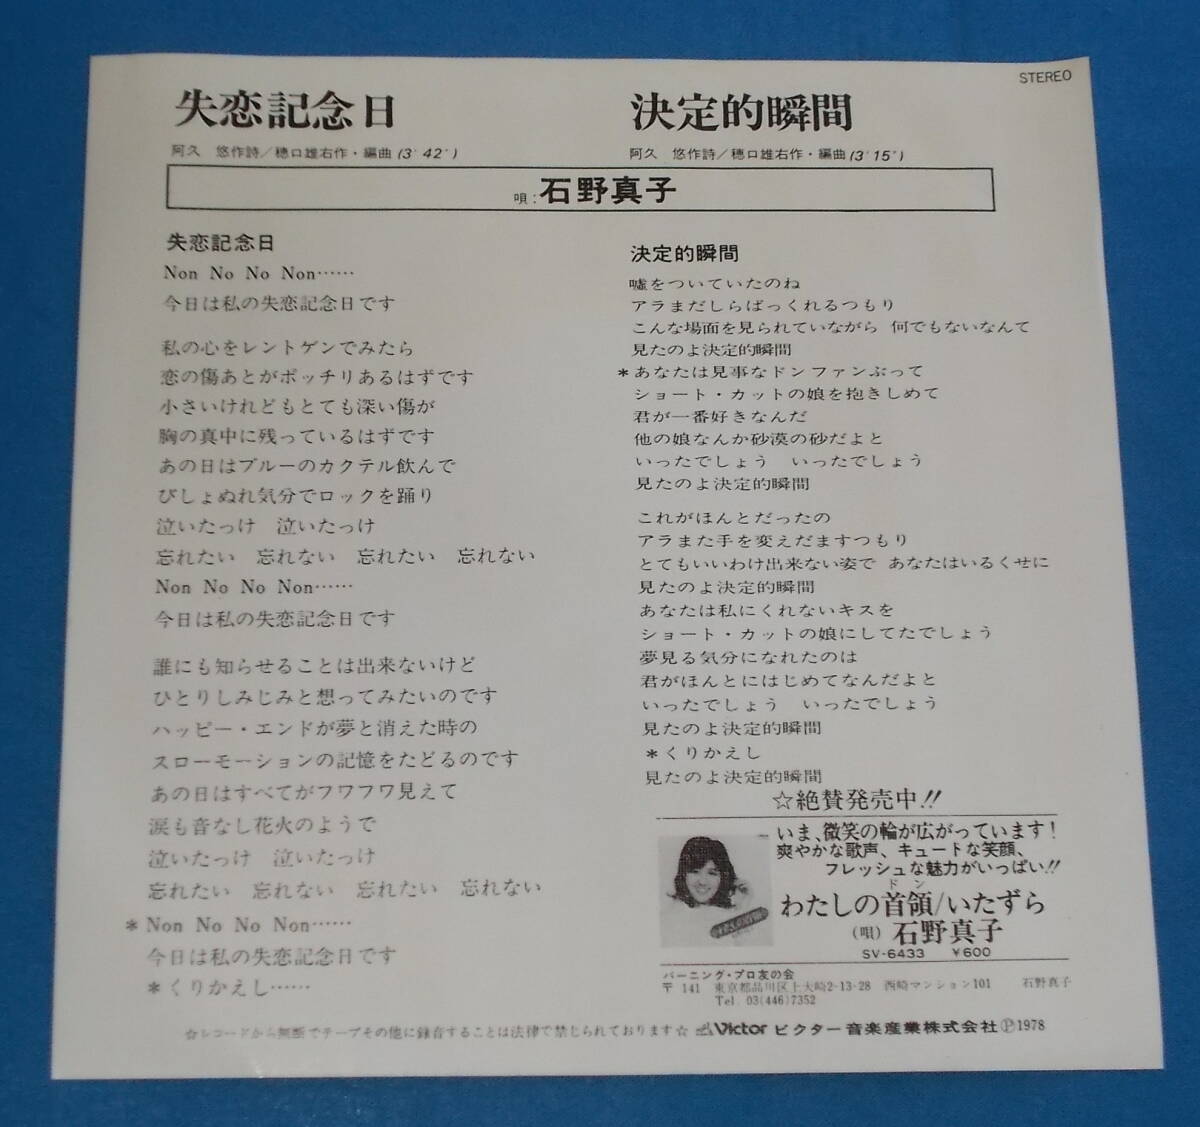 STEREO
失恋記念日
阿久 悠作詩/穂口雄右作・編曲(3'42")
決定的瞬間
阿久 悠作詩/穂口雄右作・編曲(3'15")
唄:石野真子
失恋記念日
Non No No Non……
今日は私の失恋記念日です
私の心をレントゲンでみたら
恋の傷あとがポッチリあるはずです
小さいけれどもとても深い傷が
胸の真中に残っているはずです
あの日はブルーのカクテル飲んで
びしょぬれ気分でロックを踊り
泣いたっけ 泣いたっけ
忘れたい 忘れない 忘れたい 忘れない
Non No No Non……
今日は私の失恋記念日です
誰にも知らせることは出来ないけど
ひとりしみじみと想ってみたいのです
ハッピー・エンドが夢と消えた時の
スローモーションの記憶をたどるのです
あの日はすべてがフワフワ見えて
涙も音なし花火のようで
泣いたっけ 泣いたっけ
忘れたい 忘れない 忘れたい 忘れない
*Non No No Non……
今日は私の失恋記念日です
*くりかえし……
決定的瞬間
嘘をついていたのね
アラまだしらばっくれるつもり
こんな場面を見られていながら 何でもないなんて
見たのよ決定的瞬間
*あなたは見事なドンファンぶって
ショート・カットの娘を抱きしめて
君が一番好きなんだ
他の娘なんか砂漠の砂だよと
いったでしょう いったでしょう
見たのよ決定的瞬間
これがほんとだったの
アラまた手を変えだますつもり
とてもいいわけ出来ない姿で あなたはいるくせに
見たのよ決定的瞬間
あなたは私にくれないキスを
ショート・カットの娘にしてたでしょう
夢見る気分になれたのは
君がほんとにはじめてなんだよと
いったでしょう いったでしょう
見たのよ決定的瞬間
*くりかえし
見たのよ決定的瞬間
☆絶賛発売中!!
いま、微笑の輪が広がっています!
爽やかな歌声、キュートな笑顔、
フレッシュな魅力がいっぱい!!
ドン
わたしの首領/いたずら
(唄) 石野真子
SV-6433 ¥600
バーニング・プロ友の会
〒141 東京都品川区上大崎2-13-28 西崎マンション101 石野真子
Tel. 03(446)7352
☆レコードから無断でテープその他に録音することは法律で禁じられております☆ Victor ビクター音楽産業株式会社Ⓟ1978